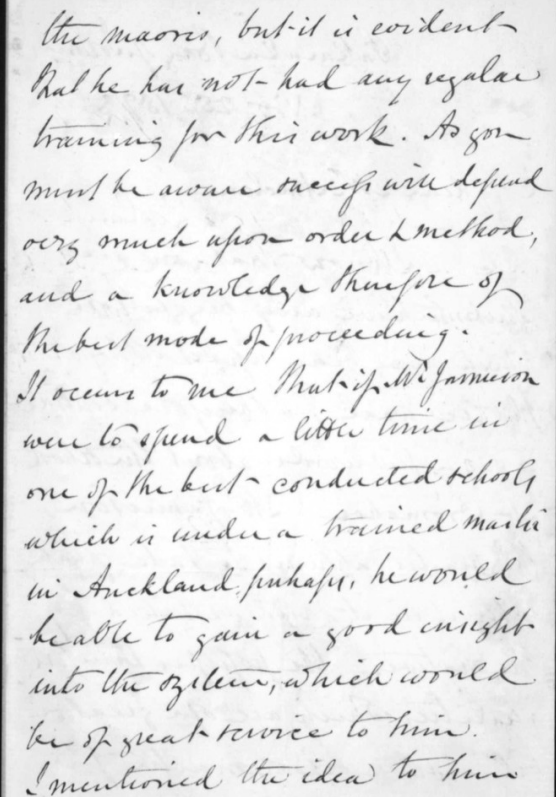 the maoris, but it is evident
that he has not had any regular
training for this work. As you
must be aware success will depend
very much upon order & method,
and a knowledge therefore of
the best mode of proceeding.
It occurs to me that if Mr Jamieson
were to spend a little time in
one of the best conducted schools
which is under a trained master
in Auckland perhaps, he would
be able to gain a good insight
into the system, which would
be of great service to him.
I mentioned the idea to him